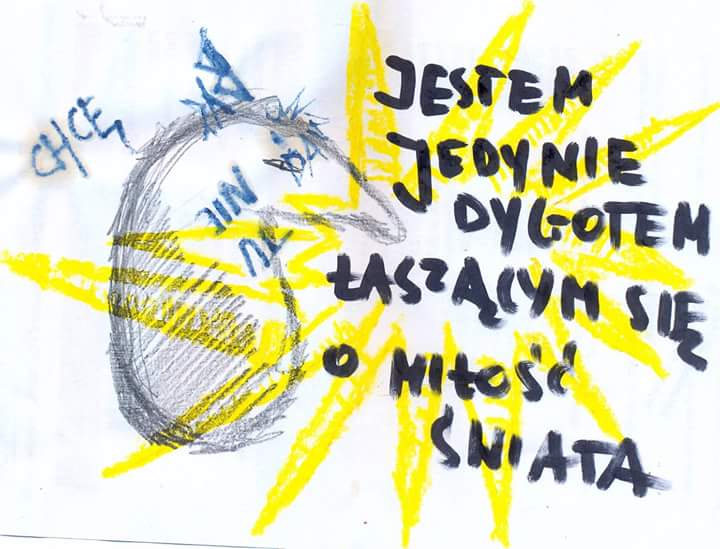 CHCĘ
JESTEM
JEDYNIE
DYGOTEM
ŁASZĄCYM SIĘ
O MIŁOŚĆ
ŚWIATA